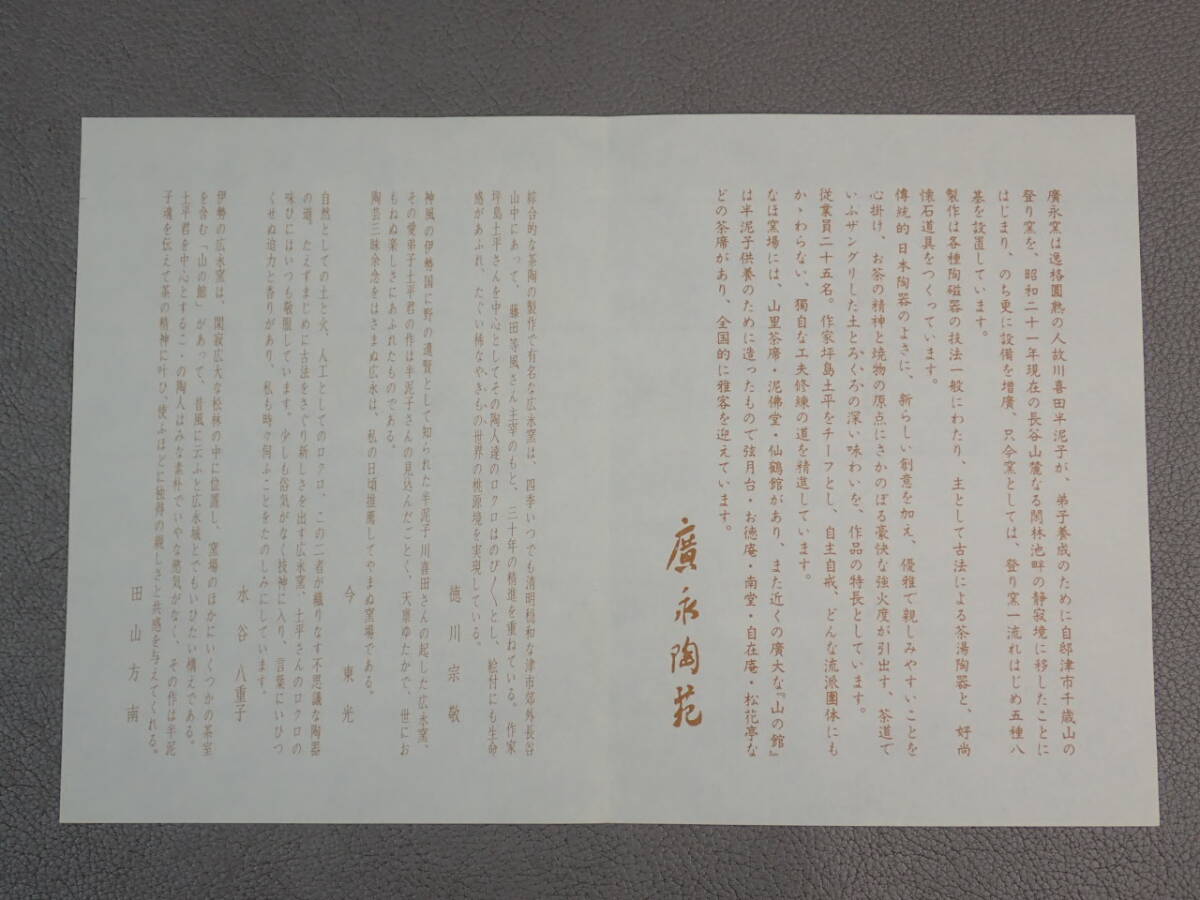 廣永窯は逸格圓熟の人故川喜田半泥子が、弟子養成のために自邸津市千歳山の
登り窯を、昭和二十一年現在の長谷山麓なる閑林池畔の静寂境に移したことに
はじまり、のち更に設備を増廣、只今窯としては、登り窯一流れはじめ五種八
基を設置しています。
製作は各種陶磁器の技法一般にわたり、主として古法による茶湯陶器と、好尚
懐石道具をつくっています。
傳統的日本陶器のよさに、新らしい創意を加え、優雅で親しみやすいことを
心掛け、お茶の精神と焼物の原点にさかのぼる豪快な強火度が引出す、茶道で
いふザングリした土とろくろの深い味わいを、作品の特長としています。
従業員二十五名。作家坪島土平をチーフとし、自主自戒、どんな流派團体にも
かゝわらない、獨自な工夫修練の道を精進しています。
なほ窯場には、山里茶席・泥佛堂・仙鶴館があり、また近くの廣大な『山の館』
は半泥子供養のために造ったもので弦月台・お徳庵・南堂・自在庵・松花亭な
どの茶席があり、全国的に雅客を迎えています。
廣永陶苑
綜合的な茶陶の製作で有名な広永窯は、四季いつでも清明穏和な津市郊外長谷
山中にあって、藤田等風さん主宰のもと、三十年の精進を重ねている。作家
坪島土平さんを中心としてその陶人達のロクロはのび〱とし、絵付にも生命
感があふれ、たぐい稀なやきもの世界の桃源境を実現している。
徳川宗敬
神風の伊勢国に野の遺賢として知られた半泥子川喜田さんの起した広永窯、
その愛弟子土平君の作は半泥子さんの見込んだごとく、天禀ゆたかで、世にお
もねぬ楽しさにあふれたものである。
陶芸三昧余念をはさまぬ広永は、私の日頃推薦してやまぬ窯場である。
今東光
自然としての土と火、人工としてのロクロ、この二者が織りなす不思議な陶器
の道。たえずまじめに古法をさぐり新しさを出す広永窯、土平さんのロクロの
味ひにはいつも敬服しています。少しも俗気がなく技神に入り、言葉にいひつ
くせぬ迫力と香りがあり、私も時々伺ふことをたのしみにしています。
水谷八重子
伊勢の広永窯は、閑寂広大な松林の中に位置し、窯場のほかにいくつかの茶室
を含む「山の館」があって、昔風に云ふと広永城とでもいひたい構えである。
土平君を中心とするこゝの陶人はみな素朴でいやな慾気がなく、その作は半泥
子魂を伝えて茶の精神に叶ひ、使ふほどに独得の親しさと共感を与えてくれる。
田山方南